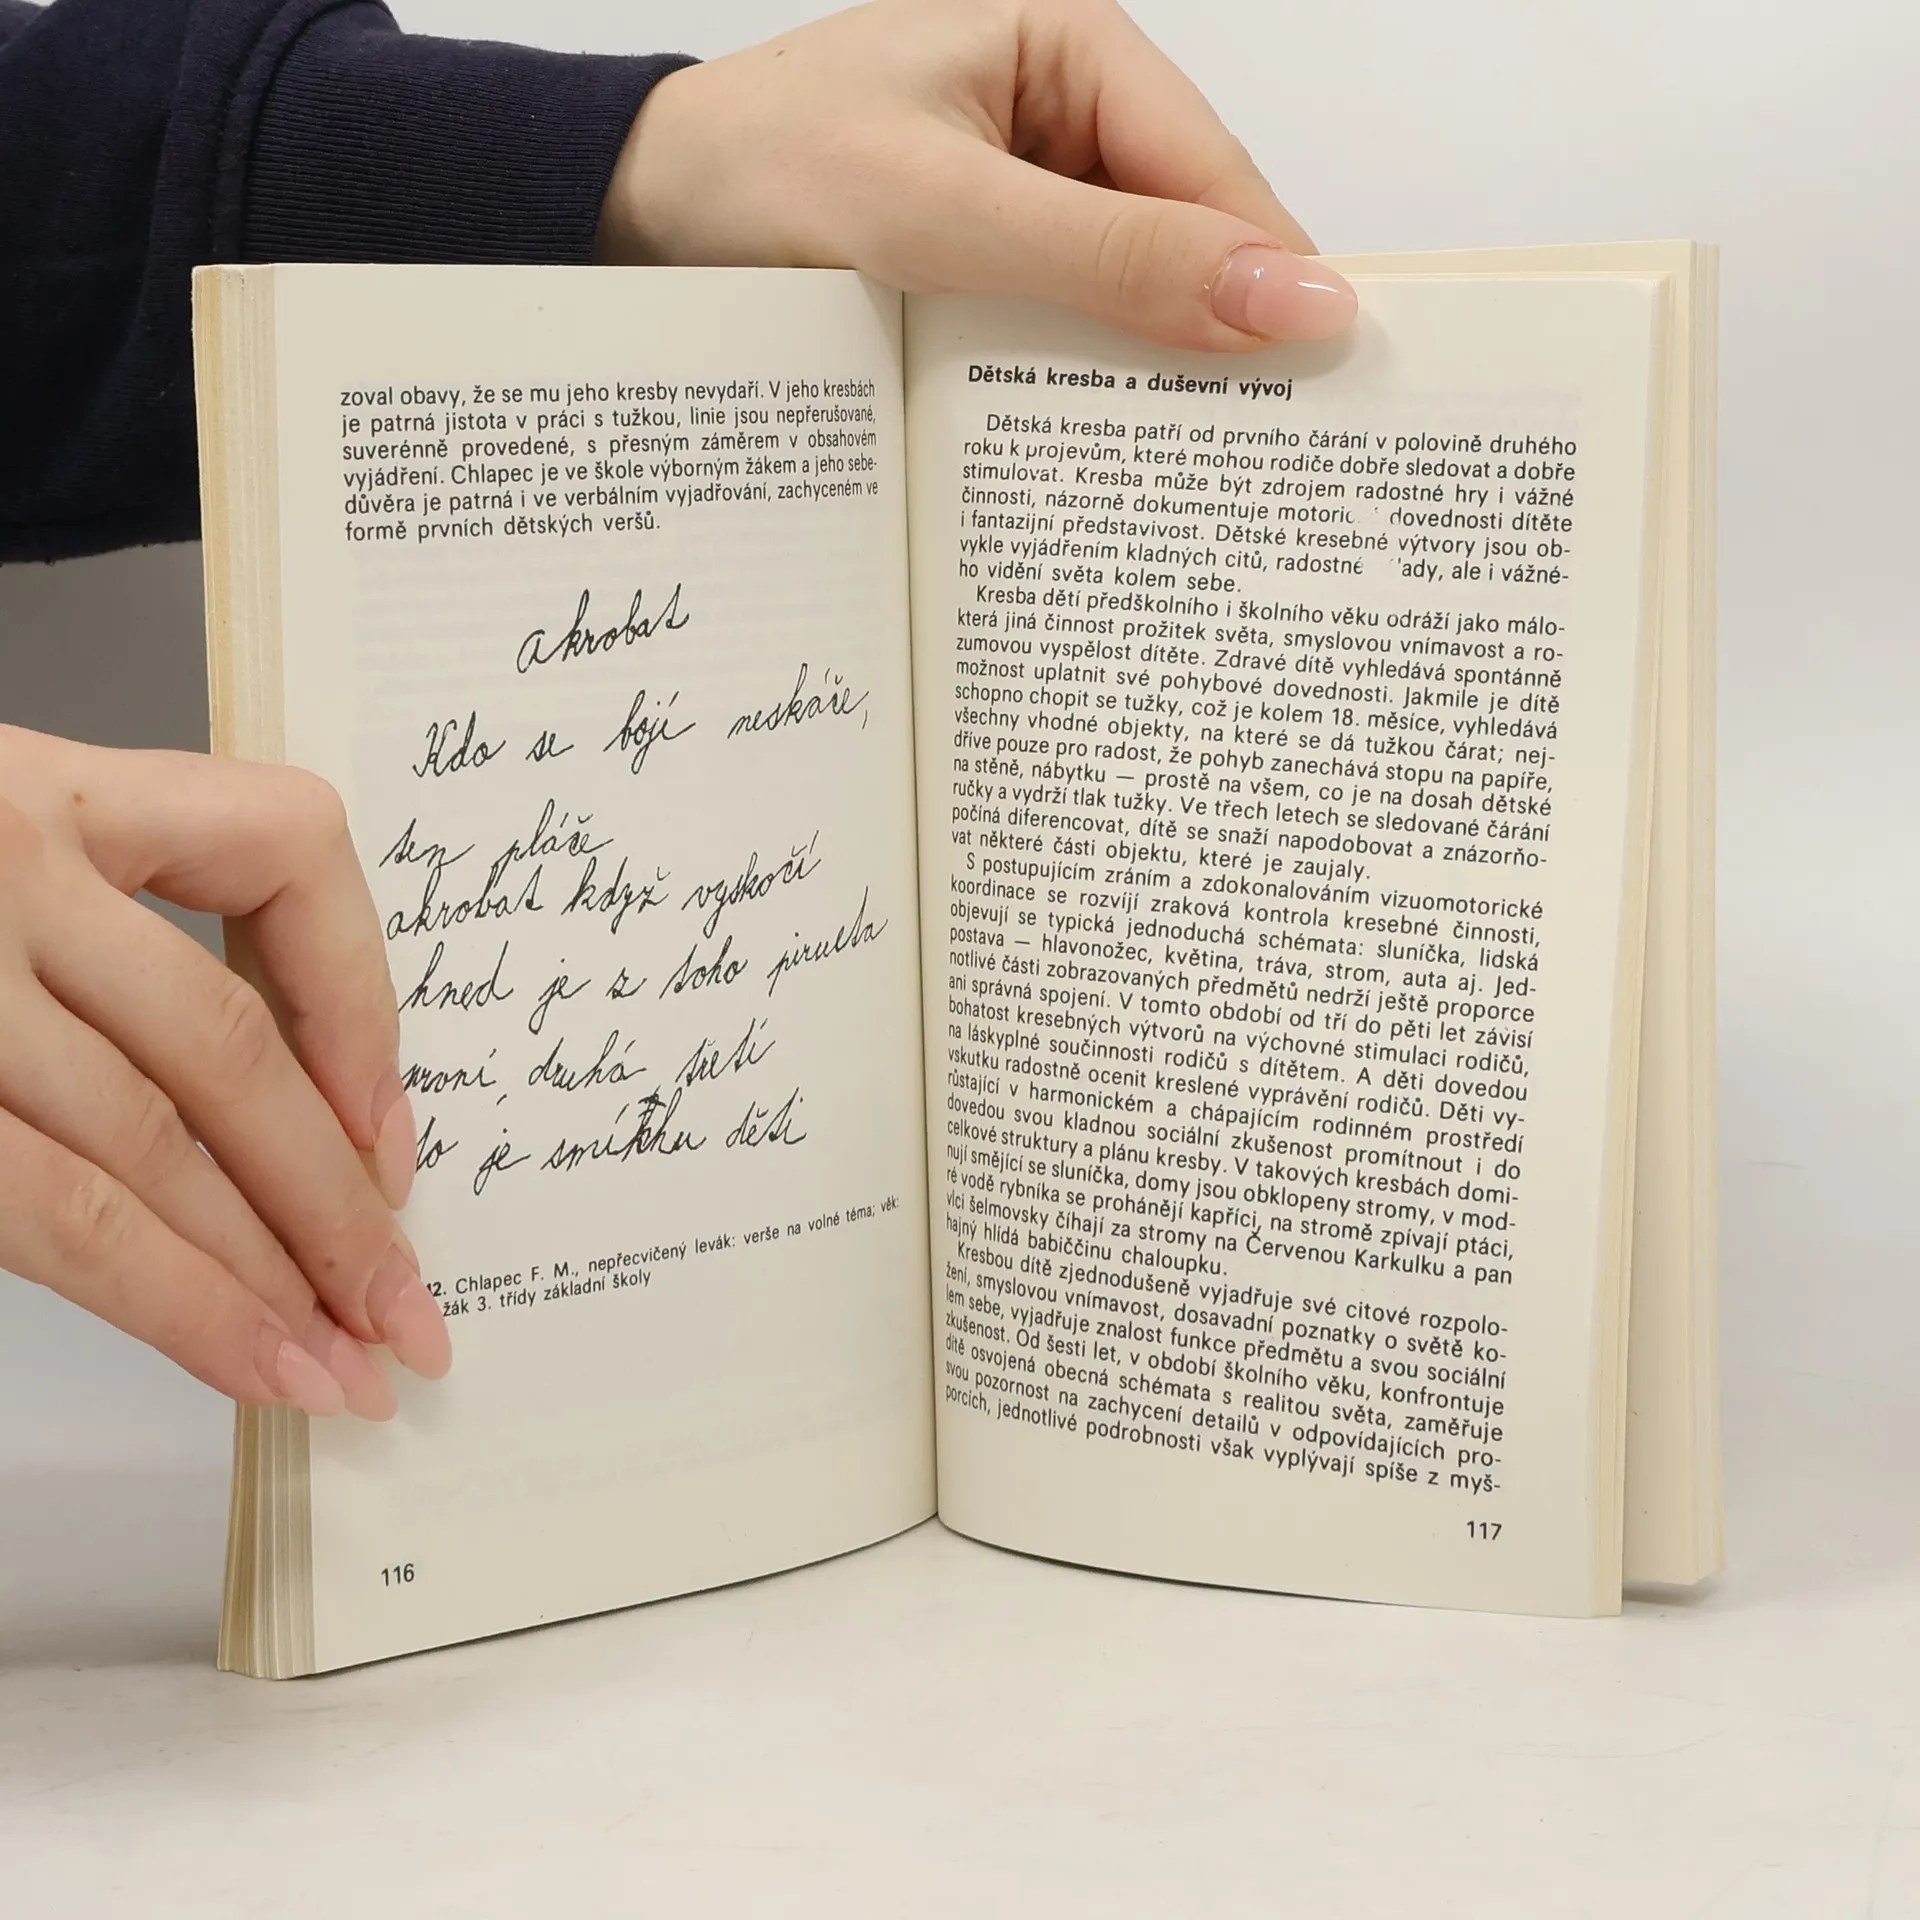 zoval obavy, že se mu jeho kresby nevydaří. V jeho kresbách
je patrná jistota v práci s tužkou, linie jsou nepřerušované,
suverénně provedené, s přesným záměrem v obsahovém
vyjádření. Chlapec je ve škole výborným žákem a jeho sebe-
důvěra je patrná i ve verbálním vyjadřování, zachyceném ve
formě prvních dětských veršů.
akrobat
Kdo se bojí neskáče,
ten pláče
akrobat když vyskočí
hned je z toho pirueta
druhá třetí
je smíchu dětí
12. Chlapec F. M., nepřecvičený levák: verše na volné téma; věk:
žák 3. třídy základní školy
116
Dětská kresba a duševní vývoj
Dětská kresba patří od prvního čárání v polovině druhého
roku k projevům, které mohou rodiče dobře sledovat a dobře
stimulovat. Kresba může být zdrojem radostné hry i vážné
činnosti, názorně dokumentuje dovednosti dítěte
i fantazijní představivost. Dětské kresebné výtvory jsou ob-
vykle vyjádřením kladných citů, radostné ale i vážné-
ho vidění světa kolem sebe.
Kresba dětí předškolního i školního věku odráží jako málo-
která jiná činnost prožitek světa, smyslovou vnímavost a ro-
zumovou vyspělost dítěte. Zdravé dítě vyhledává spontánně
možnost uplatnit své pohybové dovednosti. Jakmile je dítě
schopno chopit se tužky, což je kolem 18. měsíce, vyhledává
všechny vhodné objekty, na které se dá tužkou čárat; nej-
dříve pouze pro radost, že pohyb zanechává stopu na papíře,
na stěně, nábytku — prostě na všem, co je na dosah dětské
ručky a vydrží tlak tužky. Ve třech letech se sledované čárání
počíná diferencovat, dítě se snaží napodobovat a znázorňo-
vat některé části objektu, které je zaujaly.
S postupujícím zráním a zdokonalováním vizuomotorické
koordinace se rozvíjí zraková kontrola kresebné činnosti,
objevují se typická jednoduchá schémata: sluníčka, lidská
postava — hlavonožec, květina, tráva, strom, auta aj. Jed-
notlivé části zobrazovaných předmětů nedrží ještě proporce
ani správná spojení. V tomto období od tří do pěti let závisí
bohatost kresebných výtvorů na výchovné stimulaci rodičů,
na láskyplné součinnosti rodičů s dítětem. A děti dovedou
vskutku radostně ocenit kreslené vyprávění rodičů. Děti vy-
růstající v harmonickém a chápajícím rodinném prostředí
dovedou svou kladnou sociální zkušenost promítnout i do
celkové struktury a plánu kresby. V takových kresbách domi-
nují smějící se sluníčka, domy jsou obklopeny stromy, v mod-
ré vodě rybníka se prohánějí kapříci, na stromě zpívají ptáci,
vlci šelmovsky číhají za stromy na Červenou Karkulku a pan
hajný hlídá babiččinu chaloupku.
Kresbou dítě zjednodušeně vyjadřuje své citové rozpolo-
žení, smyslovou vnímavost, dosavadní poznatky o světě ko-
lem sebe, vyjadřuje znalost funkce předmětu a svou sociální
zkušenost. Od šesti let, v období školního věku, konfrontuje
dítě osvojená obecná schémata s realitou světa, zaměřuje
svou pozornost na zachycení detailů v odpovídajících pro-
porcích, jednotlivé podrobnosti však vyplývají spíše z myš-
117